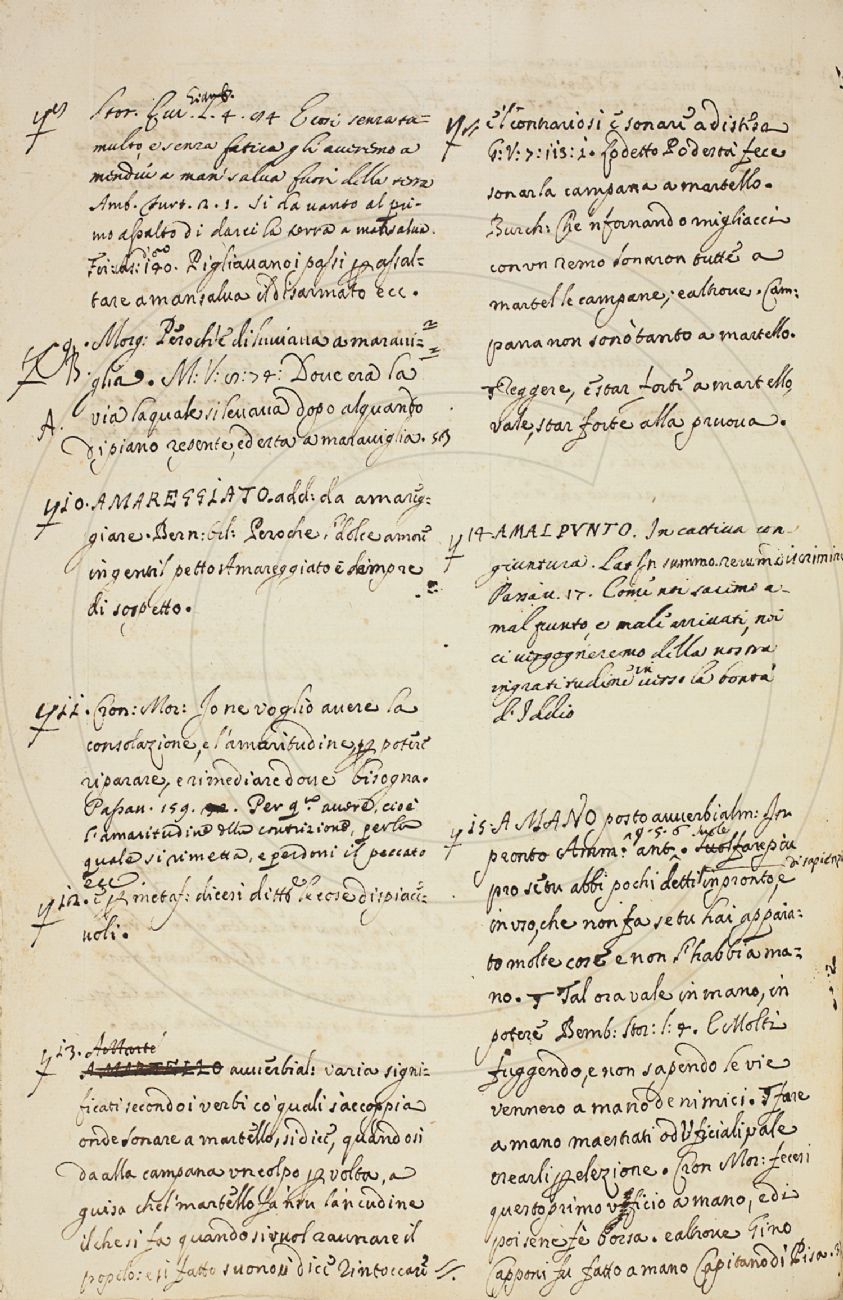 Stor. Eur. 4. E cosi senza tu=
multo, e senza fatica gli averemo a
man' salva fuori della terra
Amb. Furt. 2. 1. Si da vanto al pri=
mo assalto di darci la terra a man salva.
Pigliavano i passi p assal=
tare a man salva il disarmato ecc.
9. Morg: Peroch'è diluviava a maravi=
B. glia. M: V: 8: 74: Dove era la
A. via laquale si levava dopo alquanto
di piano repente, ed erta a maraviglia.
10. AMAREGGIATO. add: da amareg=
giare. Bern: Orl: Peroche, 'l dolce amore
in gentil petto Amareggiato è sempre
di sospetto.
11. Cron: Mor: Io ne voglio avere la
consolazione, e l'amaritudine, p potere
riparare, e rimediare dove bisogna.
Passav. 159. Per avere, cioè
l'amaritudine della contrizione, per la
quale si rimetta, e perdoni il peccato
ecc
12. E p metaf: dicesi di tte le cose dispiace:
voli.
13. A Marte
AMARTELLO avverbial: varia signi=
ficati secondo i verbi co' quali s'accoppia
onde sonare a martello, si dice, quando si
da alla campana un colpo p volta, a
guisa che 'l martello fa in su l'ancudine
il che si fa quando si vuol raunare il
popolo: e si fatto suono si dice Rintoccare
è 'l contrario si è sonare a distesa
G: V: 7: 113: 1. Podestà fece
sonar la campana a martello.
Burch: Che 'nfornando migliacci
con un remo sonaron tutte a
martel le campane; e altrove. Cam:
pana non sonò tanto a martello.
Reggere, e star forte a martello,
vale, star forte alla pruova.
14 AMALPVNTO. In cattiva con
giuntura. Lat In summo rerum discrimine
Passav. 17. Come noi saremo a
mal punto, e male arrivati, noi
ci vergogneremo della nostra
ingratitudine inverso la bontà
d'Iddio
15. A MANO posto avverbialm: In
pronto Amm: ant: 9. 5. 6. Suole far più
pro se tu abbi pochi detti di sapienza in pronto, e
in uso, che non fa se tu hai appara=
to molte cose e non l'habbi a ma=
no. Tal ora vale in mano, in
potere Bemb: Stor: l: 4. E Molti
fuggendo, e non sapendo le vie
vennero a mano de nimici. Fare
a mano maestrati od Uficiali vale
crearli p elezione. Cron Mor: feceri
questo primo uficio a mano, e di
poi sene fè borsa. e altrove Gino
Capponi fu fatto a mano Capitano di Pisa.